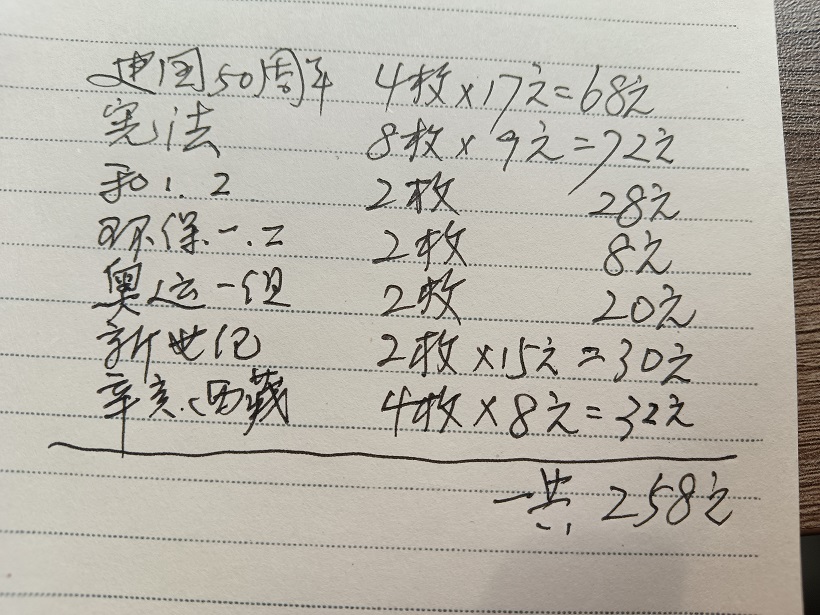 建国50周年 4枚×17元=68元
宪法 8枚×9元=72元
和1.2 2枚 28元
环保.一.二 2枚 8元
奥运一组 2枚 20元
新世纪 2枚×15元=30元
辛亥.西藏 4枚×8元=32元
一共 258元